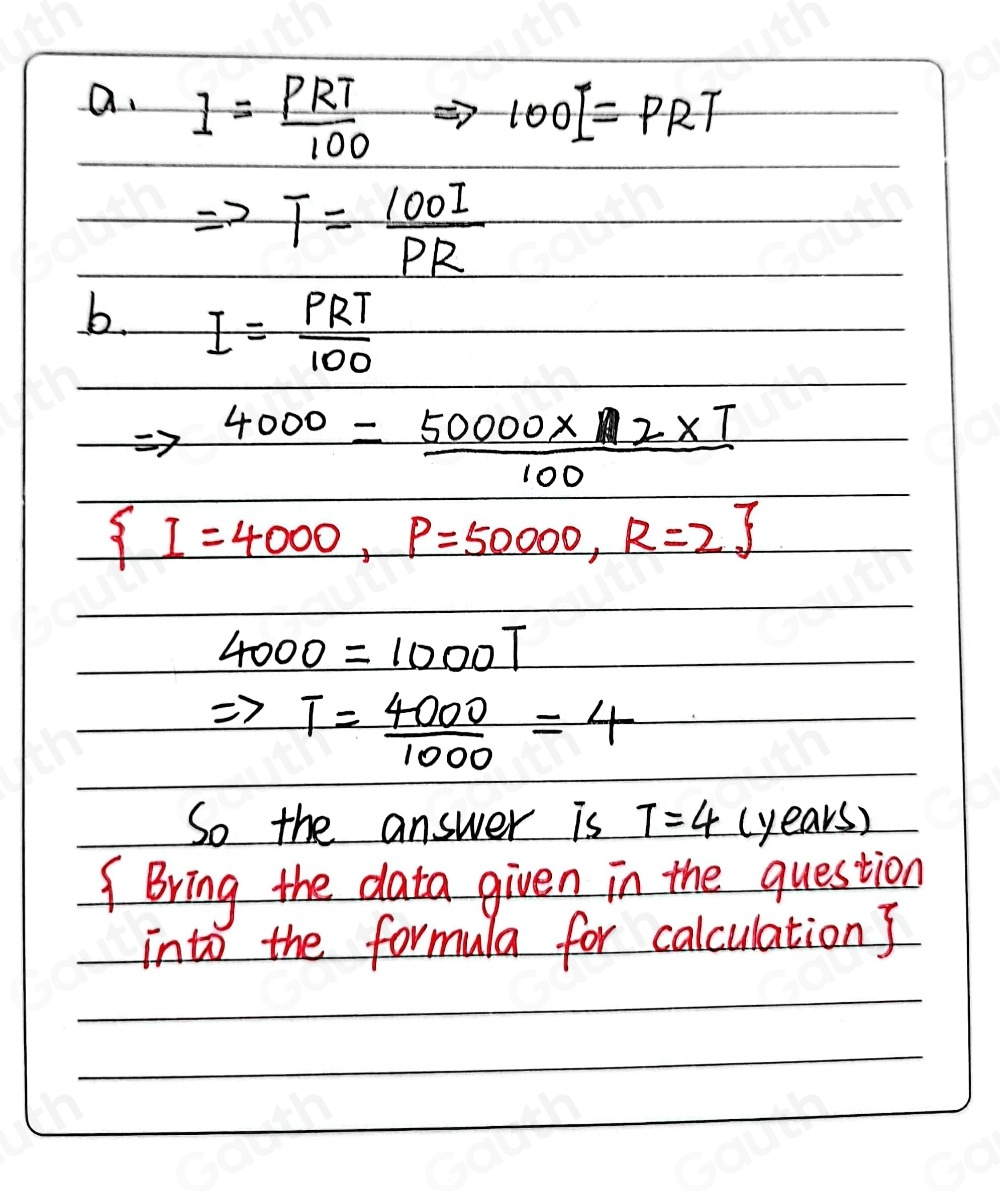 a. I = PRT/100 => 100I = PRT
=> T = 100I/PR
b. I = PRT/100
=> 4000 = 50000 × 2 × T/100
{ I = 4000, P = 50000, R = 2 }
4000 = 1000T
=> T = 4000/1000 = 4
So the answer is T = 4 (years)
{ Bring the data given in the question
into the formula for calculation }